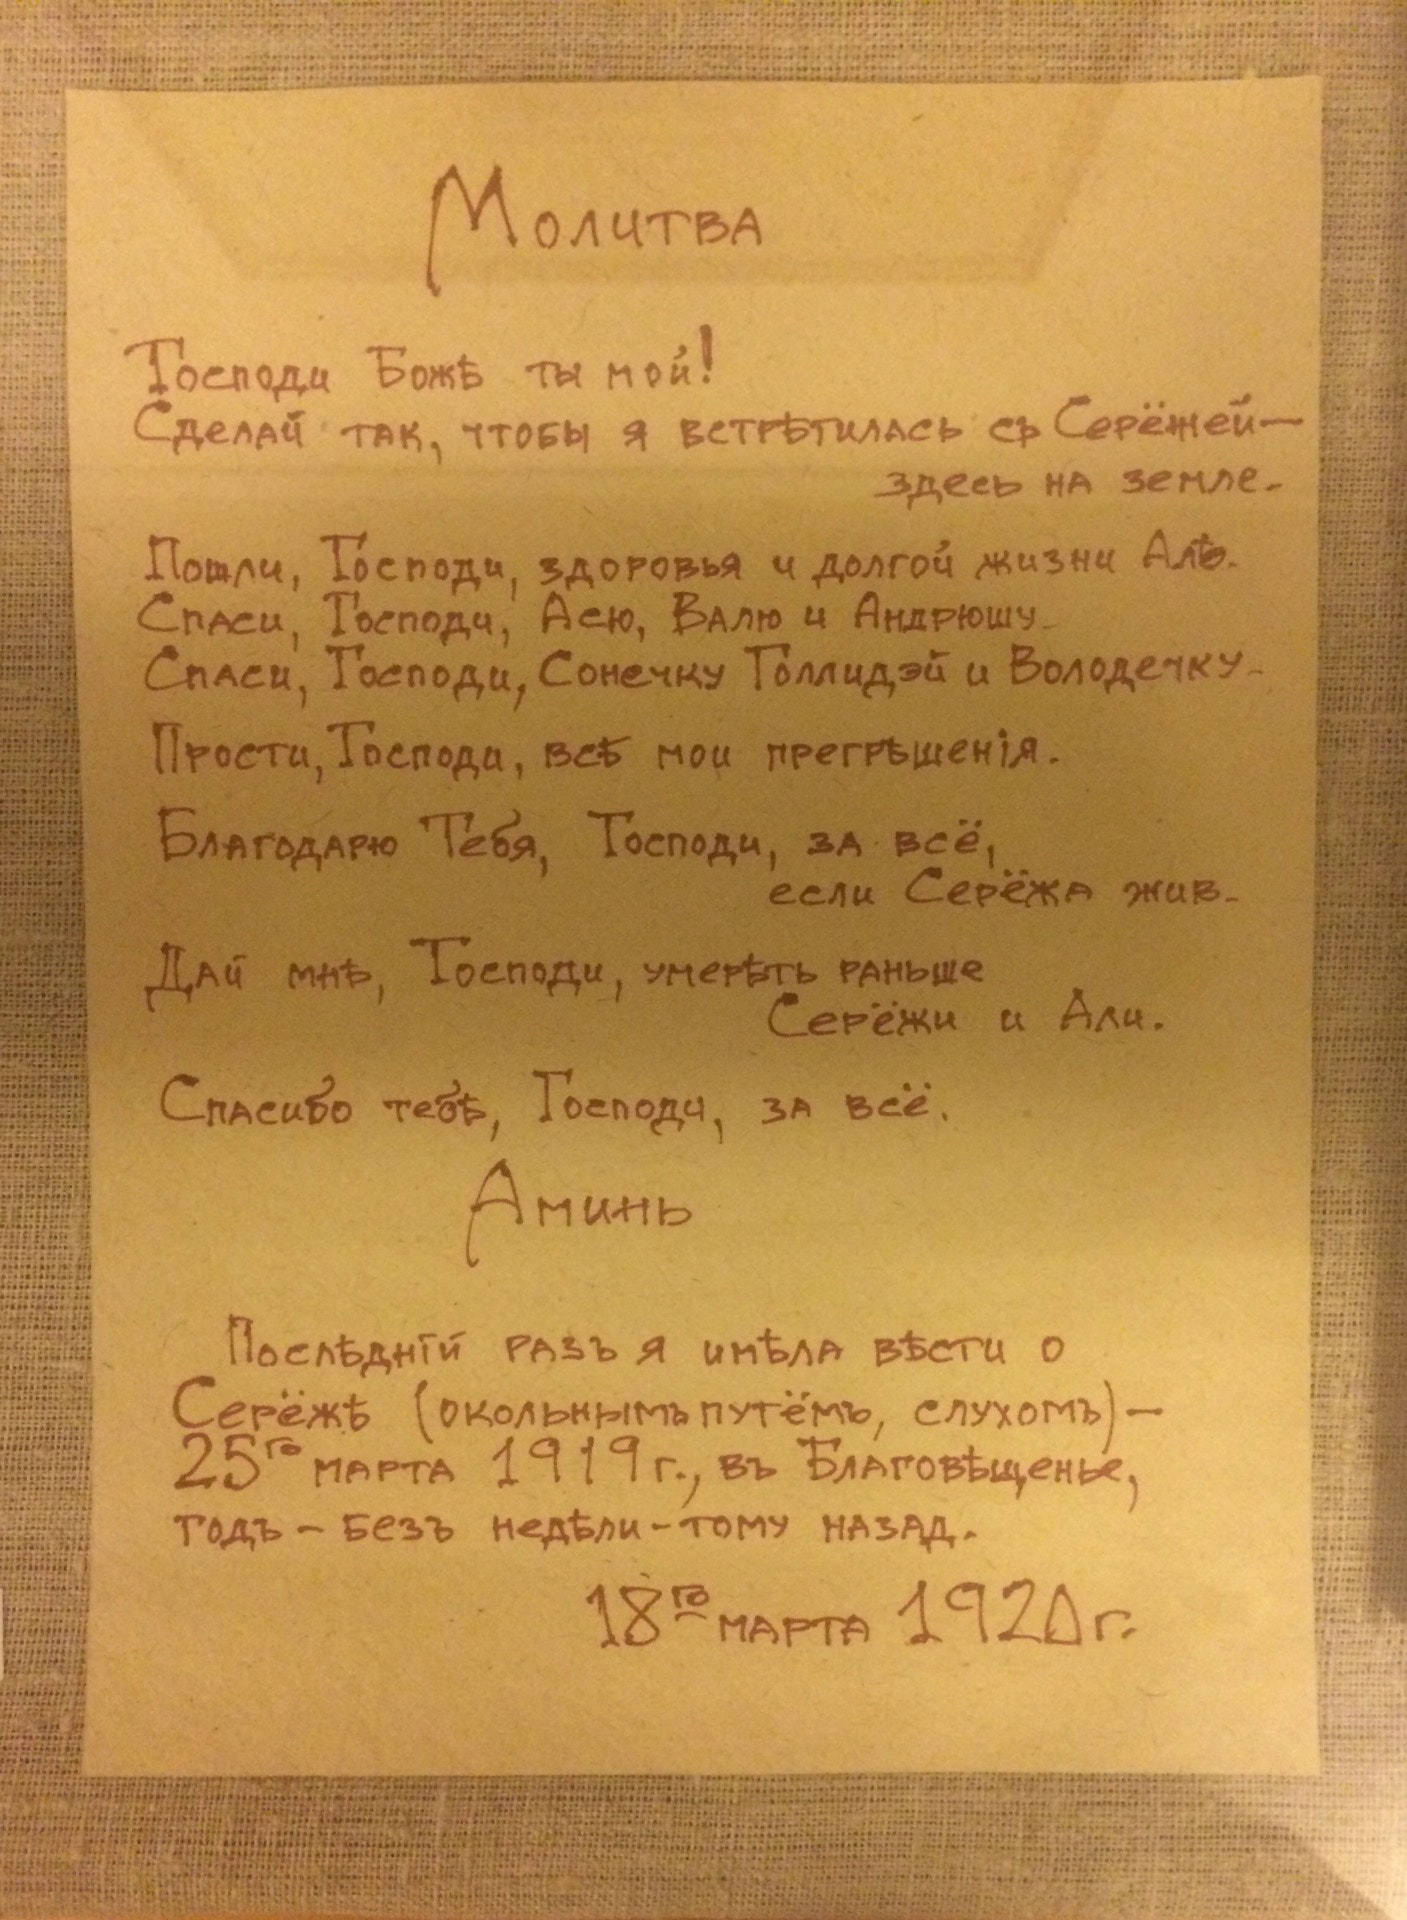 Молитва
Господи Божѣ ты мой!
Сделай так, чтобы я встрѣтилась съ Серёжей—
здесь на земле.
Пошли, Господи, здоровья и долгой жизни Алѣ.
Спаси, Господи, Асю, Валю и Андрюшу.
Спаси, Господи, Сонечку Голлидэй и Володечку.
Прости, Господи, всѣ мои прегрѣшенія.
Благодарю Тебя, Господи, за всё,
если Серёжа жив.
Дай мнѣ, Господи, умерѣть раньше
Серёжи и Али.
Спасибо тебѣ, Господи, за всё.
Аминь
Послѣдній разъ я имѣла вѣсти о
Серёжѣ (окольнымъ путёмъ, слухомъ) —
25го марта 1919г., въ Благовѣщенье,
годъ – безъ недѣли – тому назад.
18го марта 1920г.